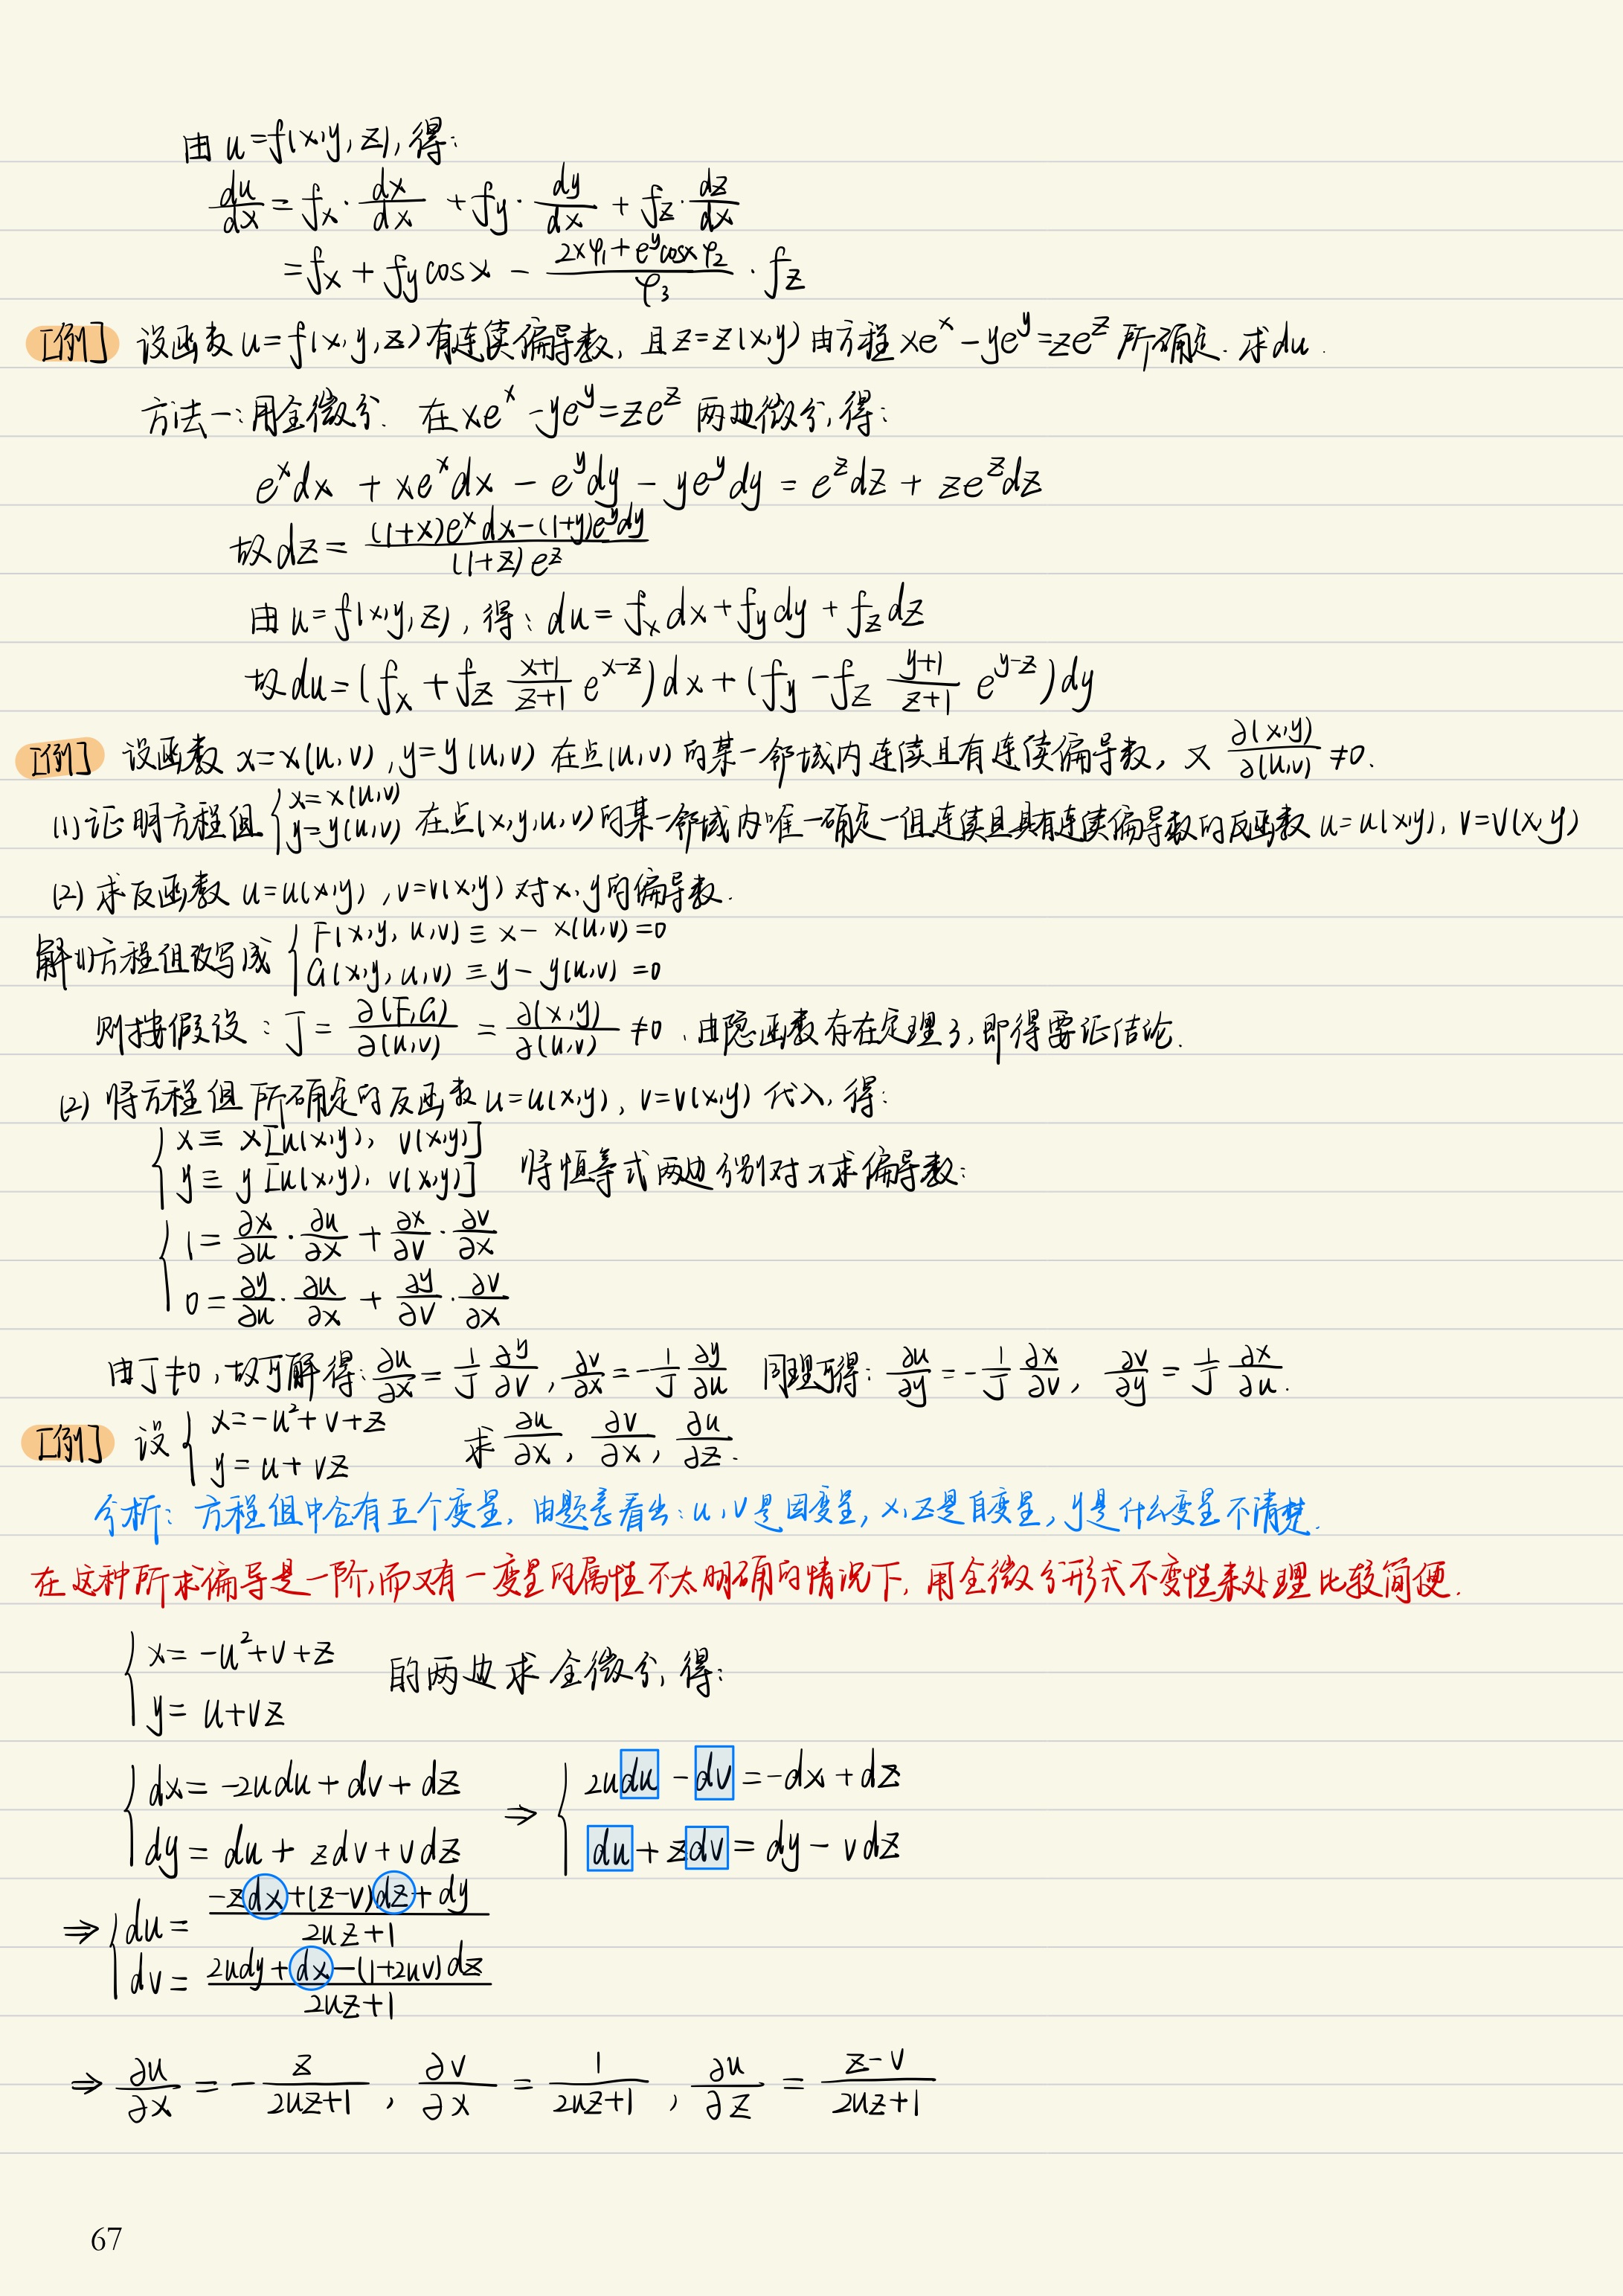 由 u=f(x,y,z), 得:
du/dx = f_x · dx/dx + f_y · dy/dx + f_z · dz/dx
= f_x + f_y cosx − (2xφ₁ + e^y cosx φ₂)/φ₃ · f_z
[例] 设函数 u=f(x,y,z) 有连续偏导数, 且 z=z(x,y) 由方程 xe^x − ye^y = ze^z 所确定. 求du.
方法一: 用全微分. 在 xe^x − ye^y = ze^z 两边微分, 得:
e^x dx + xe^x dx − e^y dy − ye^y dy = e^z dz + ze^z dz
故 dz = ((1+x)e^x dx − (1+y)e^y dy)/((1+z)e^z)
由 u=f(x,y,z), 得: du = f_x dx + f_y dy + f_z dz
故 du = (f_x + f_z (x+1)/(z+1) e^(x−z)) dx + (f_y − f_z (y+1)/(z+1) e^(y−z)) dy
[例] 设函数 x=x(u,v), y=y(u,v) 在点(u,v) 的某一邻域内连续且有连续偏导数, 又 ∂(x,y)/∂(u,v) ≠0.
(1) 证明方程组 { x=x(u,v) y=y(u,v) 在点(x,y,u,v)的某一邻域内唯一确定一组连续且具有连续偏导数的反函数 u=u(x,y), v=v(x,y)
(2) 求反函数 u=u(x,y), v=v(x,y) 对 x, y的偏导数.
解(1)方程组改写成 { F(x,y,u,v) ≡ x − x(u,v) =0 G(x,y,u,v) ≡ y − y(u,v) =0
则按假设: J = ∂(F,G)/∂(u,v) = ∂(x,y)/∂(u,v) ≠0, 由隐函数存在定理3, 即得要证结论.
(2) 将方程组所确定的反函数 u=u(x,y), v=v(x,y) 代入, 得:
{ x ≡ x[u(x,y), v(x,y)]
y ≡ y[u(x,y), v(x,y)] 将恒等式两边分别对x求偏导数:
{ 1 = ∂x/∂u · ∂u/∂x + ∂x/∂v · ∂v/∂x
0 = ∂y/∂u · ∂u/∂x + ∂y/∂v · ∂v/∂x
由J≠0, 故可解得: ∂u/∂x = 1/J ∂y/∂v, ∂v/∂x = −1/J ∂y/∂u 同理可得: ∂u/∂y = −1/J ∂x/∂v, ∂v/∂y = 1/J ∂x/∂u.
[例] 设 { x=−u²+v+z y=u+vz 求 ∂u/∂x, ∂v/∂x, ∂u/∂z.
分析: 方程组中含有五个变量, 由题意看出: u, v是因变量, x, z是自变量, y是什么变量不清楚.
在这种所求偏导是一阶,而又有一变量的属性不太明确的情况下, 用全微分形式不变性来处理比较简便.
{ x = −u²+v+z
y = u+vz 的两边求全微分, 得:
{ dx = −2udu + dv + dz ⇒ { 2udu − dv = −dx + dz
dy = du + zdv + vdz du + zdv = dy − vdz
⇒ { du = (−zdx + (z−v)dz + dy)/(2uz+1)
dv = (2udy + dx − (1+2uv)dz)/(2uz+1)
⇒ ∂u/∂x = −z/(2uz+1), ∂v/∂x = 1/(2uz+1), ∂u/∂z = (z−v)/(2uz+1)
67